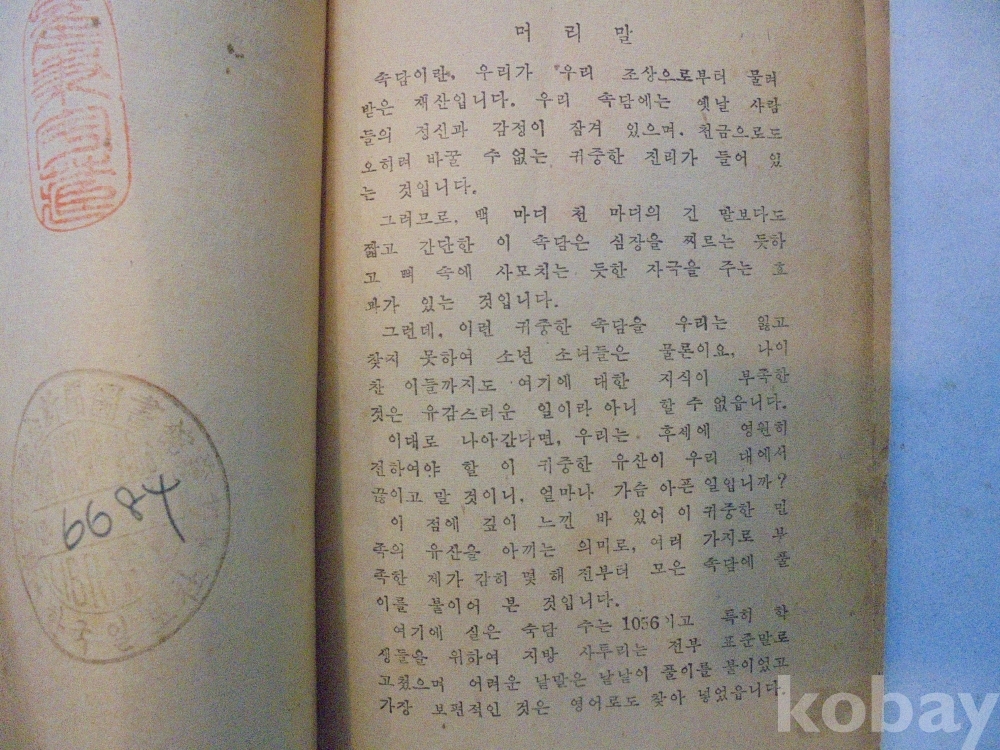 머리말
속담이란, 우리가 우리 조상으로부터 물려
받은 재산입니다. 우리 속담에는 옛날 사람
들의 정신과 감정이 잠겨 있으며, 천금으로도
오히려 바꿀 수 없는 귀중한 진리가 들어 있
는 것입니다.
그러므로, 백 마디 천 마디의 긴 말보다도
짧고 간단한 이 속담은 심장을 찌르는 듯하
고 뼈 속에 사모치는 듯한 자극을 주는 효
과가 있는 것입니다.
그런데, 이런 귀중한 속담을 우리는 잃고
찾지 못하여 소년 소녀들은 물론이요, 나이
찬 이들까지도 여기에 대한 지식이 부족한
것은 유감스러운 일이라 아니 할 수 없읍니다.
이대로 나아간다면, 우리는 후세에 영원히
전하여야 할 이 귀중한 유산이 우리 대에서
끊이고 말 것이니, 얼마나 가슴 아픈 일입니까?
이 점에 깊이 느낀 바 있어 이 귀중한 민
족의 유산을 아끼는 의미로, 여러 가지로 부
족한 제가 감히 몇 해 전부터 모은 속담에 풀
이를 붙이어 본 것입니다.
여기에 실은 속담 수는 1056이고 특히 학
생들을 위하여 지방 사투리는 전부 표준말로
고쳤으며 어려운 낱말은 낱낱이 풀이를 붙이었고
가장 보편적인 것은 영어로도 찾아 넣었읍니다.
6684
kobay